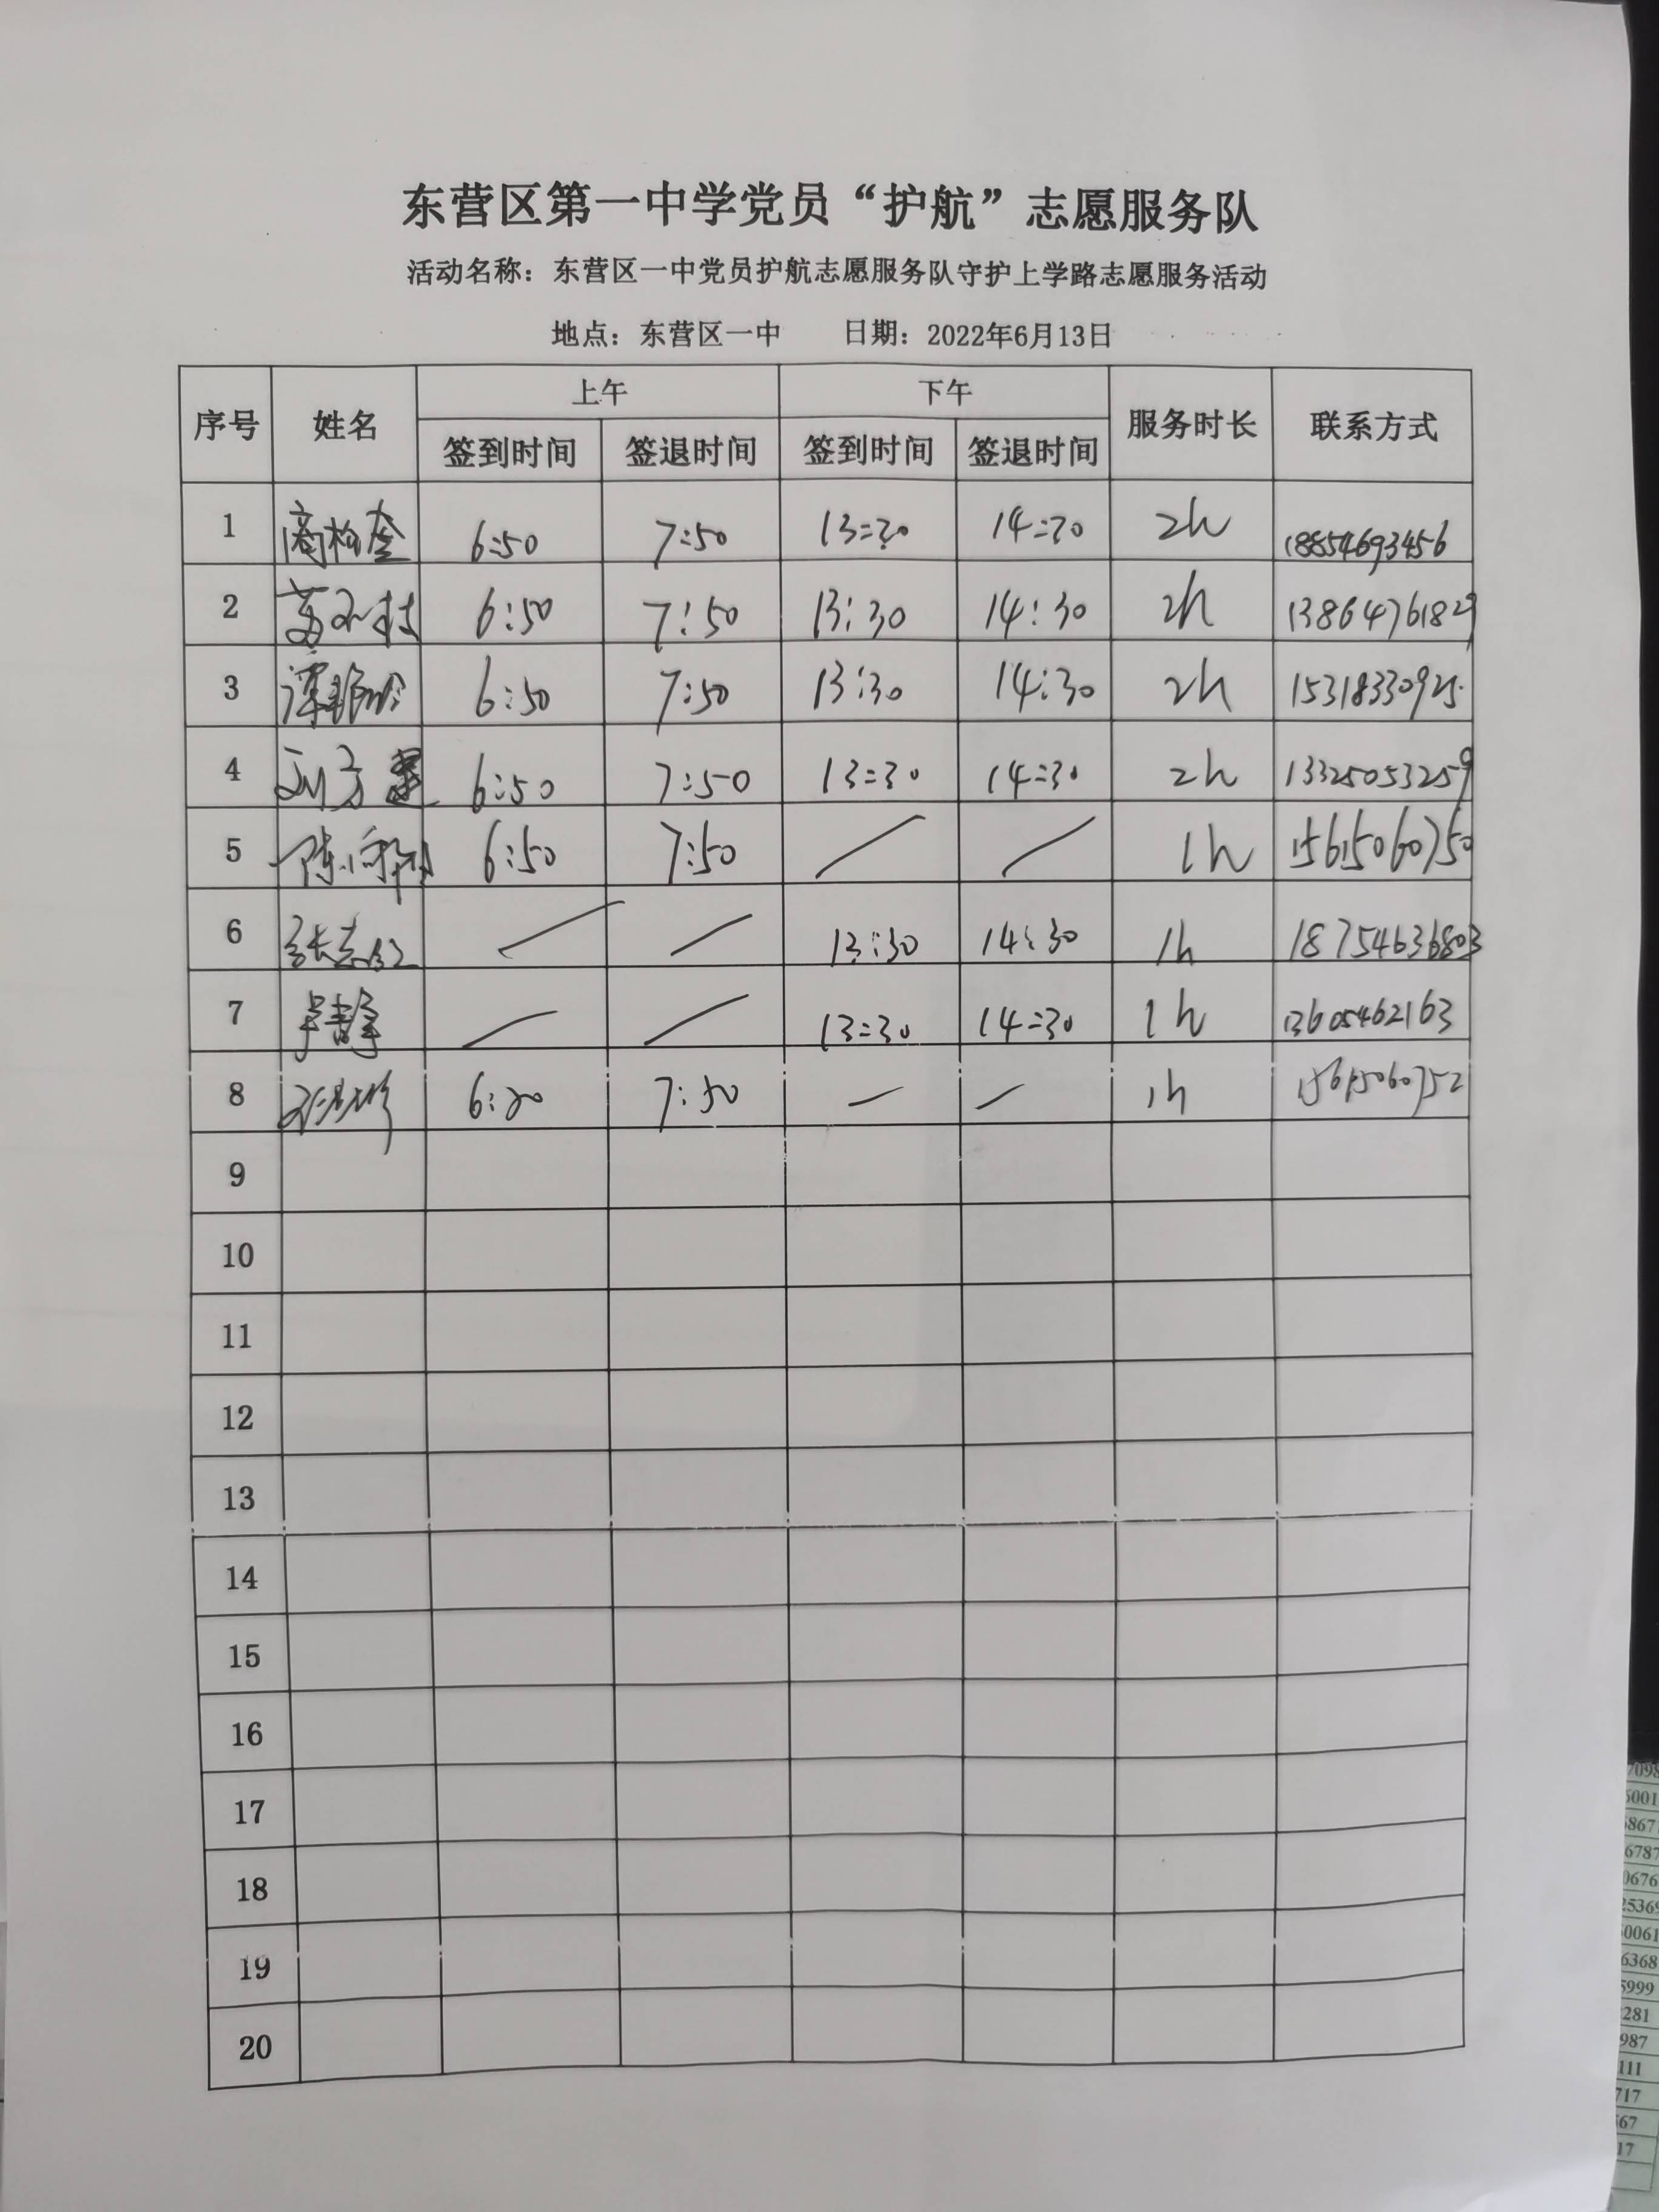 东营区第一中学党员“护航”志愿服务队
活动名称：东营区一中党员护航志愿服务队守护上学路志愿服务活动
地点：东营区一中 日期：2022年6月13日
序号 姓名 上午 下午 服务时长 联系方式
签到时间 签退时间 签到时间 签退时间
1 6:50 7:50 13:30 14:30 2h 18854693456
2 6:50 7:50 13:30 14:30 2h 13864761829
3 6:50 7:50 13:30 14:30 2h 15318330925
4 6:50 7:50 13:30 14:30 2h 13325053259
5 6:50 7:50 / / 1h 15615060750
6 / / 13:30 14:30 1h 18754636803
7 / / 13:30 14:30 1h 13605462163
8 7:50 / / 1h 15615060752
9
10
11
12
13
14
15
16
17
18
19
20